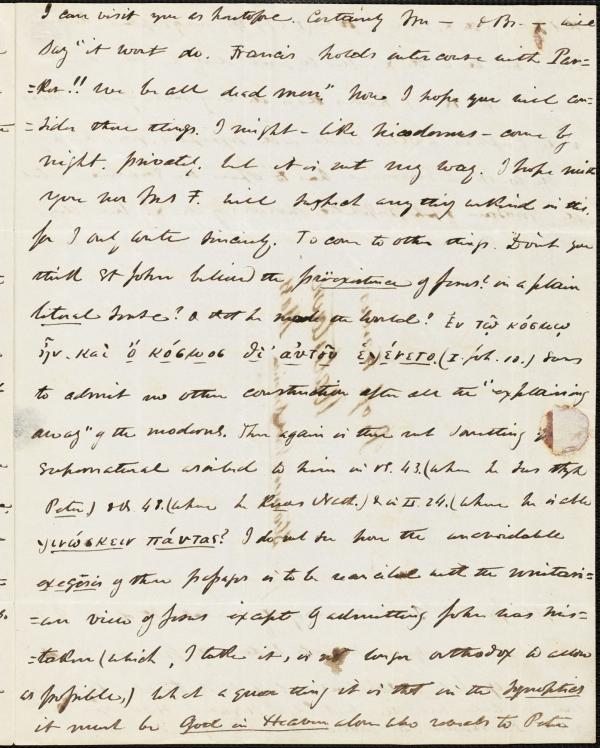 I can visit you as heretofore. Certainly Mr — & Br. — will
say "it wont do. Francis holds intercourse with Par=
=ker!! we be all dead men." Now I hope you will con=
=sider these things. I might — like Nicodemus — come by
night, privately. but it is not my way. I hope neither
you nor Mrs F. will suspect anything unkind in this,
for I only write sincerely. To come to other things. Don't you
think St John believed the präexistence of Jesus? in a plain
literal sense? & that he made the world? Ἐν τῶ κόσμω
ἦν. καὶ ὅ κόσμος δἰ αὐτοῦ ἐγένετο. (I. Joh. 10.) seems
to admit no other construction after all the "explaining
away" of the moderns. Then again is there not something
supernatural ascribed to him in vs. 43. (when he
Peter) & vs. 48. (where he knows Nath.) & in II. 24. (where he is able
γινώσκειν πάντας? I do not see how the unavoidable
exegesis of these passages is to be reconciled with the unitari=
=an view of Jesus except by admitting John was mis=
=taken (which, I take it, is no longer orthodox to allow
as possible,) What a queer thing it is that in the Synoptics
it must be God in Heaven alone who reveals to Peter